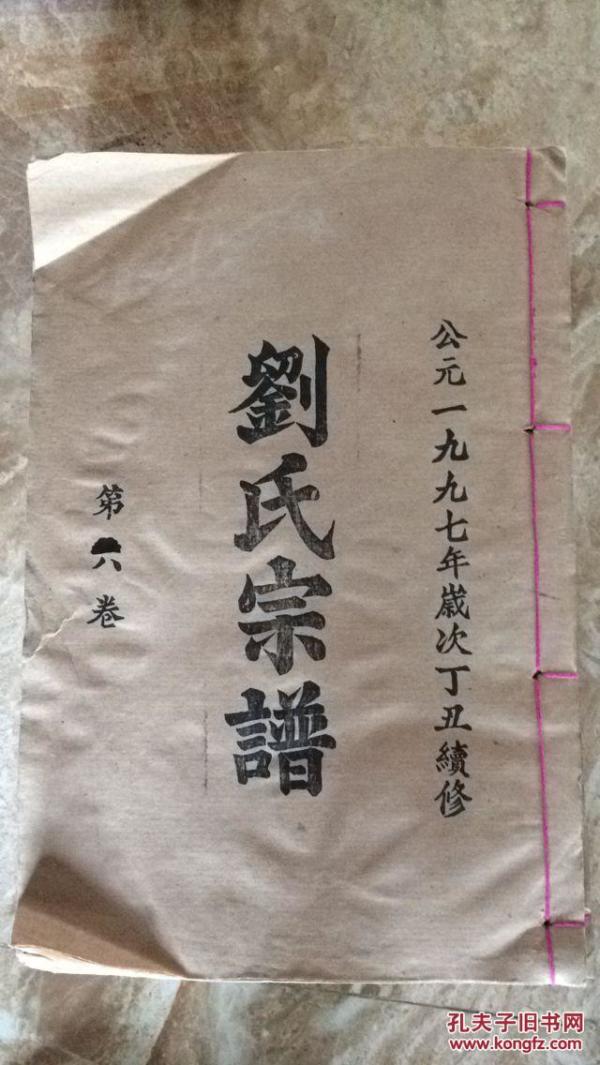 公元一九九七年歲次丁丑續修
劉氏宗譜
第六卷
孔夫子旧书网
www.kongfz.com